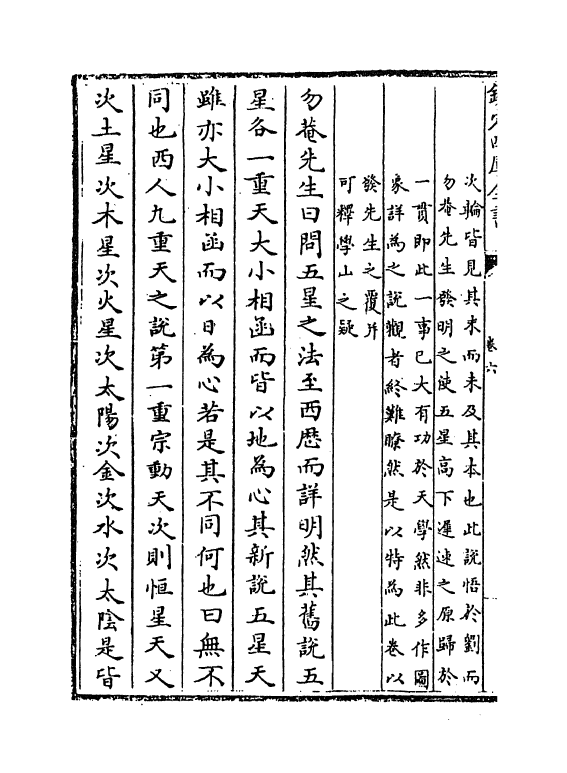 欽定四庫全書
卷六
次輪皆見其末而未及其本也此説悟於劉而
勿菴先生發明之使五星高下遲速之原歸於
一貫即此一事已大有功於天學然非多作圖
象詳為之説觀者終難瞭然是以特為此卷以
發先生之覆并
可釋學山之疑
勿菴先生曰問五星之法至西厯而詳明然其舊説五
星各一重天大小相函而皆以地為心其新説五星天
雖亦大小相函而以日為心若是其不同何也曰無不
同也西人九重天之説第一重宗動天次則恒星天又
次土星次木星次火星次太陽次金次水次太陰是皆